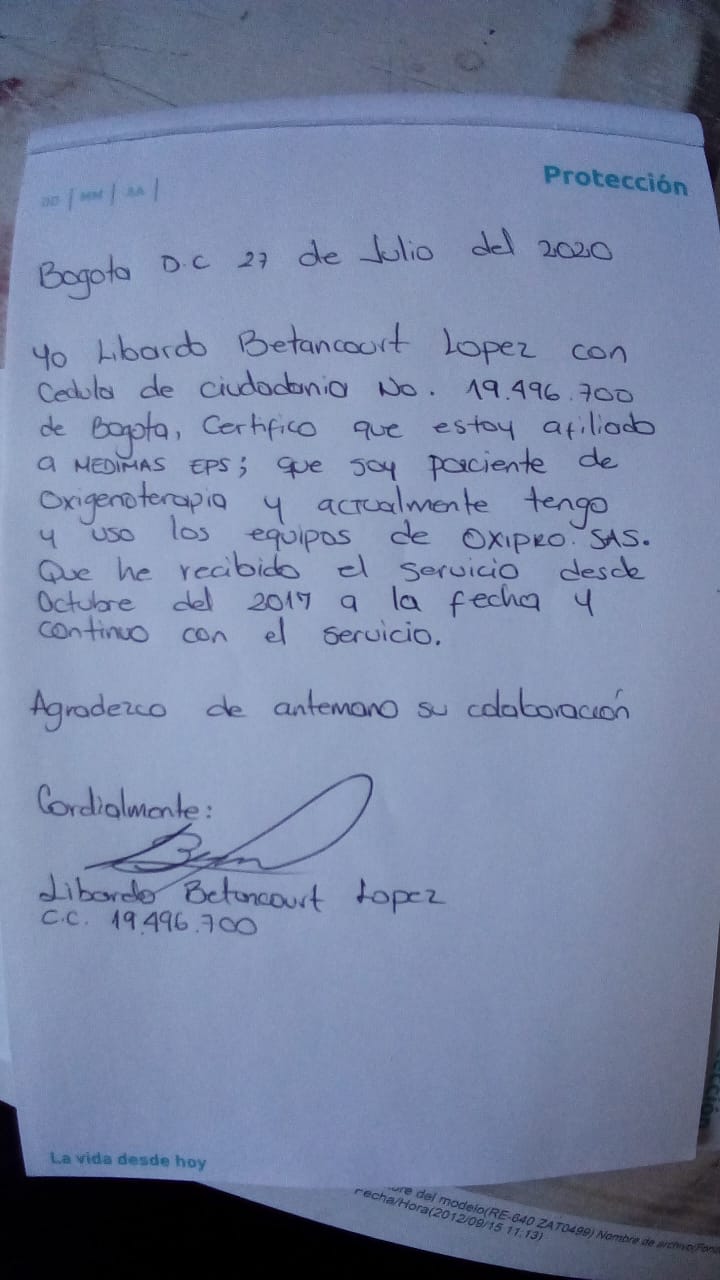 Protección
DD | MM | AA |
Bogota D.C 27 de Julio del 2020
Yo Libardo Betancourt Lopez con
Cedula de ciudadania No. 19.496.700
de Bogota, Certifico que estoy afiliado
a MEDIMAS EPS; que soy paciente de
Oxigenoterapia y actualmente tengo
y uso los equipos de OXIPRO SAS.
Que he recibido el servicio desde
Octubre del 2017 a la fecha y
continuo con el servicio.
Agradezco de antemano su colaboración
Cordialmente:
Libardo Betancourt Lopez
C.C. 19.496.700
La vida desde hoy
del modelo(RE-640 ZAT0499) Nombre de
Fecha/Hora(2012/09/15 11:13)